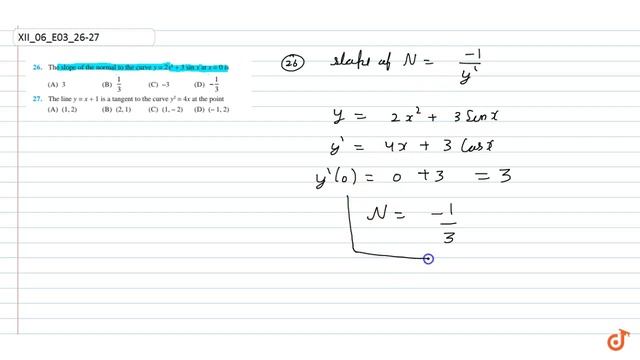 XII_06_E03_26-27
26. The slope of the normal to the curve y = 2x² + 3 sin x at x = 0 is
(A) 3 (B) 1/3 (C) –3 (D) –1/3
27. The line y = x + 1 is a tangent to the curve y² = 4x at the point
(A) (1, 2) (B) (2, 1) (C) (1, – 2) (D) (– 1, 2)
(26) slope of N = -1/y'
y = 2x² + 3 Sinx
y' = 4x + 3 Cosx
y'(0) = 0 + 3 = 3
N = -1/3
doubtnut